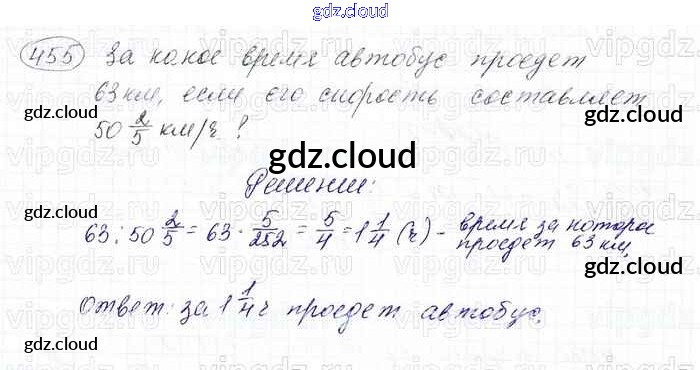 gdz.cloud
455 За какое время автобус проедет
63 км, если его скорость составляет
gdz.cloud gdz.cloud
50 2/5 км/ч ?
gdz.cloud
Решение:
gdz.cloud
63 : 50 2/5 = 63 · 5/252 = 5/4 = 1 1/4 (ч) - время за котора
проедет 63 км.
gdz.cloud gdz.cloud
Ответ: за 1 1/4 ч проедет автобус.
gdz.cloud